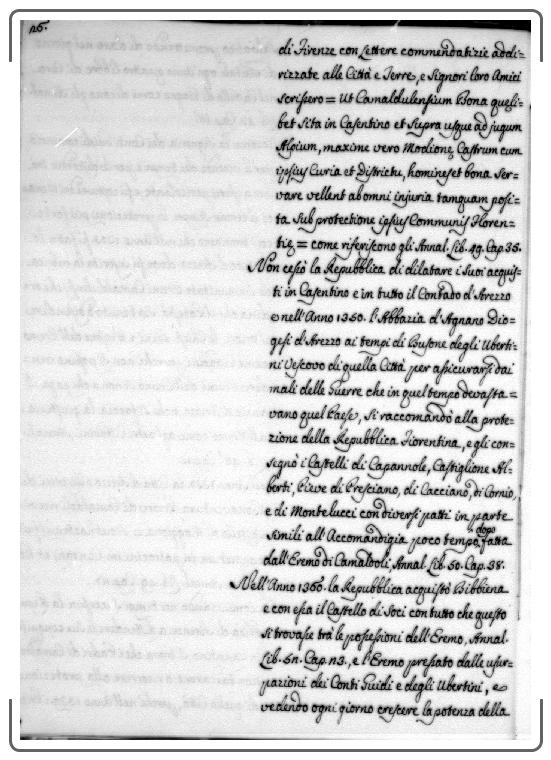 26.
di Firenze con Lettere commendatizie addi=
rizzate alle Città e Terre, e Signori loro Amici
scrissero = Ut Camaldulensium Bona queli=
bet Sita in Casentino et Supra usque ad jugum
Alpium, maxime vero Modionę Castrum cum
ipsius Curia et Districtu, homines et bona Ser=
vare vellent ab omni injuria tanquam posi=
ta Sub protectione ipsius Communis Floren=
tię = come riferiscono gli Annal. Lib. 49. Cap. 35.
Non cessò la Repubblica di dilatare i Suoi acquis=
ti in Casentino e in tutto il Contado d'Arezzo
e nell'Anno 1350. l'Abbazia d'Agnano Dio=
gesi d'Arezzo ai tempi di Busone degli Uberti=
ni Vescovo di quella Città per assicurarsi dai
mali delle Guerre che in quel tempo devasta=
vano quel Paese, Si raccomandò alla prote=
zione della Repubblica Fiorentina, e gli con=
segnò i Castelli di Capannole, Castiglione Al=
berti, Pieve di Presciano, di Cacciano, di Cornio,
e di Montelucci con diversi patti in parte
simili all'Accomandigia poco tempo dopo fatta
dall'Eremo di Camaldoli, Annal. Lib. 50. Cap. 38.
Nell'Anno 1360. la Repubblica acquistò Bibbiena
e con essa il Castello di Soci con tutto che questo
Si trovasse trà le possessioni dell'Eremo, Annal.
Lib. 51. Cap. 13., e l'Eremo pressato dalle usur=
pazioni dei Conti Guidi e degli Ubertini, e
vedendo ogni giorno crescere la potenza della